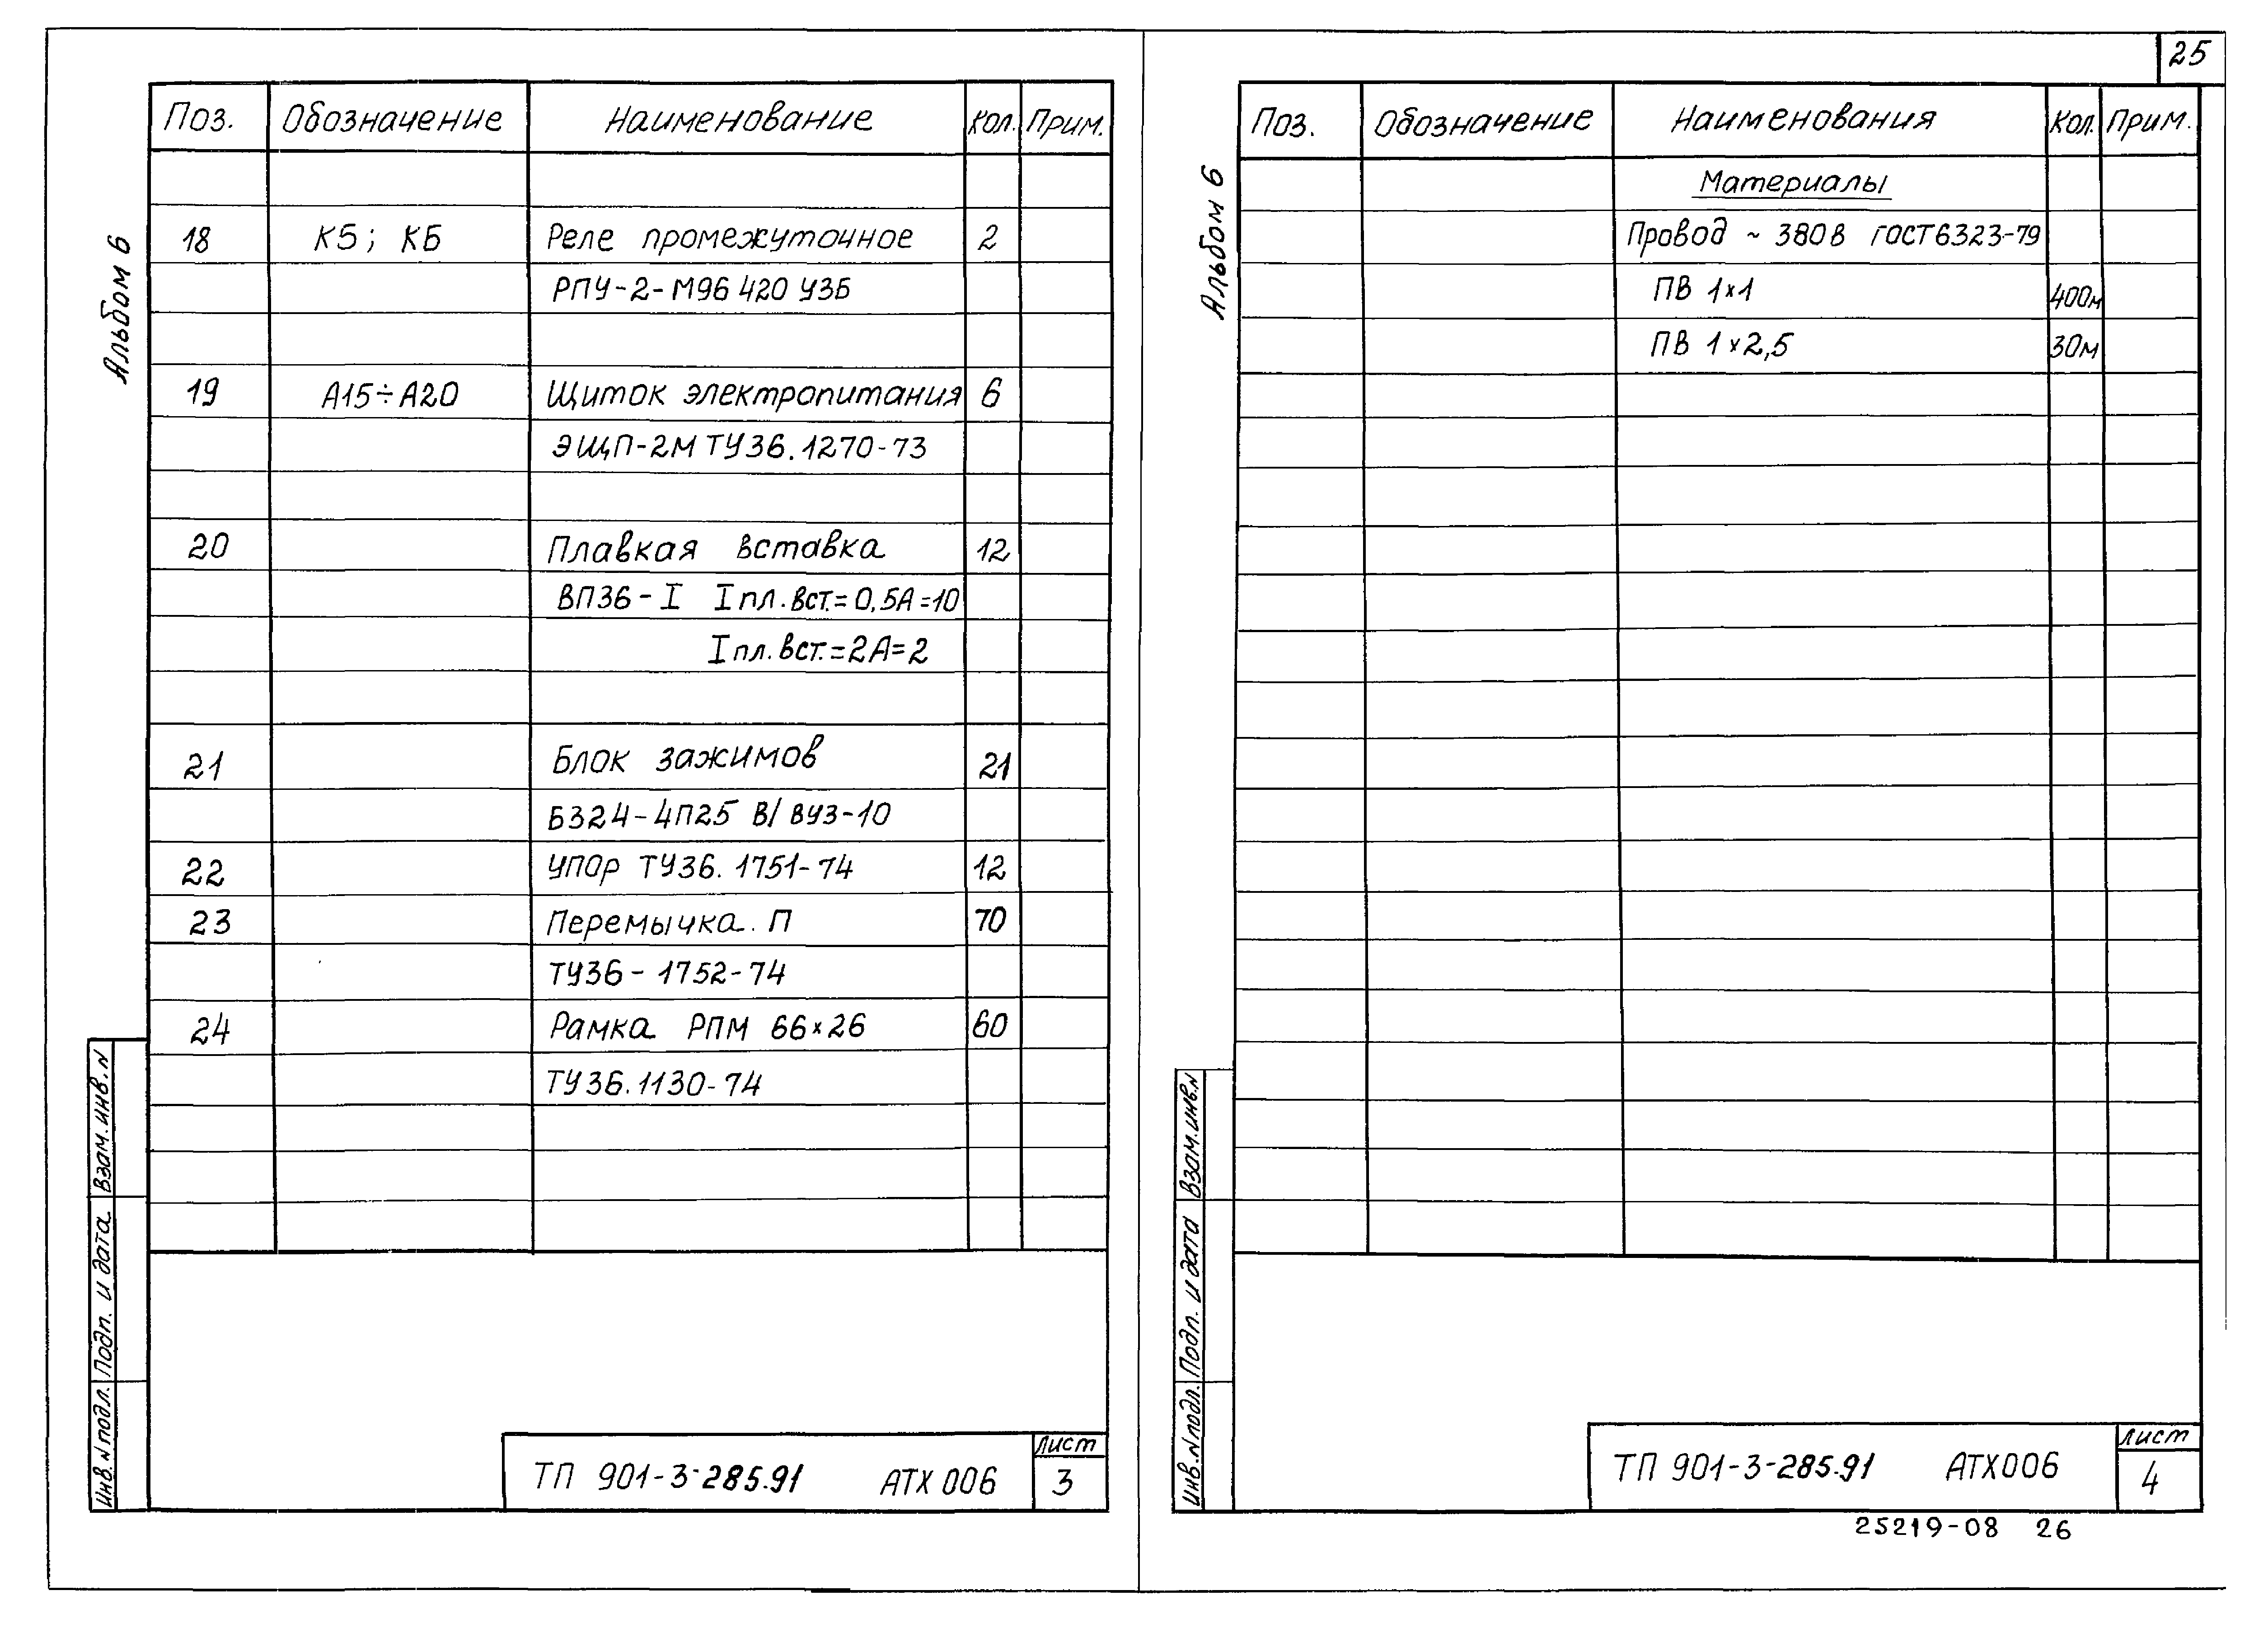 25
Альбом 6
Поз. Обозначение Наименование Кол. Прим.
18 К5; К6 Реле промежуточное 2
РПУ-2-М96 420 У3Б
19 А15÷А20 Щиток электропитания 6
ЭЩП-2М ТУ36.1270-73
20 Плавкая вставка 12
ВП36-I Iпл.вст.=0,5А=10
Iпл.вст.=2А=2
21 Блок зажимов 21
Б324-4П25 В/ВУ3-10
22 Упор ТУ36.1751-74 12
23 Перемычка. П 70
ТУ36-1752-74
24 Рамка РПМ 66×26 60
ТУ36.1130-74
Взам.инв.N
Подп. и дата
Инв.Nподл.
ТП 901-3-285.91 АТХ 006
Лист
3
Альбом 6
Поз. Обозначение Наименования Кол. Прим.
Материалы
Провод ~ 380В ГОСТ6323-79
ПВ 1×1 400м
ПВ 1×2,5 30м
Взам.инв.N
Подп. и дата
Инв.Nподл.
ТП 901-3-285.91 АТХ006
Лист
4
25219-08 26